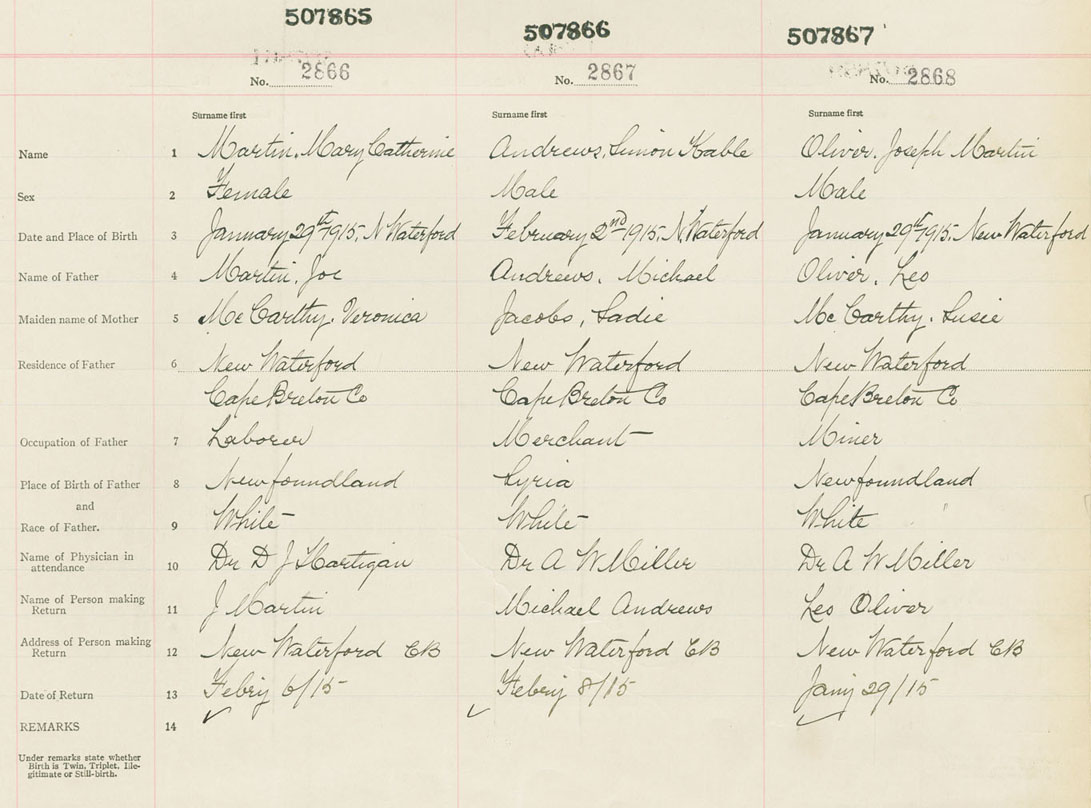 507865 507866 507867
No. 2866 No. 2867 No. 2868
Surname first Surname first Surname first
Name 1 Martin, Mary Catherine Andrews, Simon Kable Oliver, Joseph Martin
Sex 2 Female Male Male
Date and Place of Birth 3 January 29th 1915, N Waterford February 2nd 1915, N. Waterford January 29th 1915, New Waterford
Name of Father 4 Martin, Joe Andrews, Michael Oliver, Leo
Maiden name of Mother 5 McCarthy, Veronica Jacobs, Sadie McCarthy, Susie
Residence of Father 6 New Waterford New Waterford New Waterford
Cape Breton Co Cape Breton Co Cape Breton Co
Occupation of Father 7 Laborer Merchant Miner
Place of Birth of Father 8 Newfoundland Syria Newfoundland
and
Race of Father. 9 White White White
Name of Physician in
attendance 10 Dr D J Hartigan Dr A W Miller Dr A W Miller
Name of Person making
Return 11 J Martin Michael Andrews Leo Oliver
Address of Person making
Return 12 New Waterford CB New Waterford CB New Waterford CB
Date of Return 13 Febry 6/15 Febry 8/15 Jany 29/15
REMARKS 14
Under remarks state whether
Birth is Twin, Triplet, Ille-
gitimate or Still-birth.